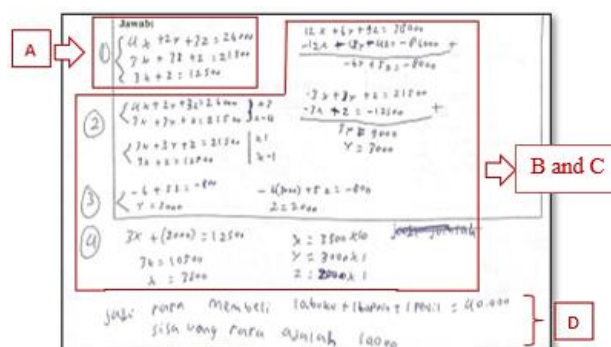 Jawab:
A
1
4x + 2y + 3z = 26000
3x + 3y + z = 21500
3x + z = 12500
12x + 6y + 9z = 78000
-6y + 5z = -8000
B and C
2
4x + 2y + 3z = 26000 x 3
3x + 3y + z = 21500 x -4
3x + 3y + z = 21500 x 1
3x + z = 12500 x -1
3x + 3y + z = 21500
-3x + z = -12500 +
3y = 9000
y = 3000
3
-6 + 5z = -800
y = 3000
-6(3000) + 5z = -800
z = 2000
4
3x + (2000) = 12500
3x = 10500
x = 3500
x = 3500 x 10
y = 3000 x 1
z = 2000 x 1
jadi rara membeli 10 buku + 1 + 1 = 40.000
sisa uang rara adalah 10000
D